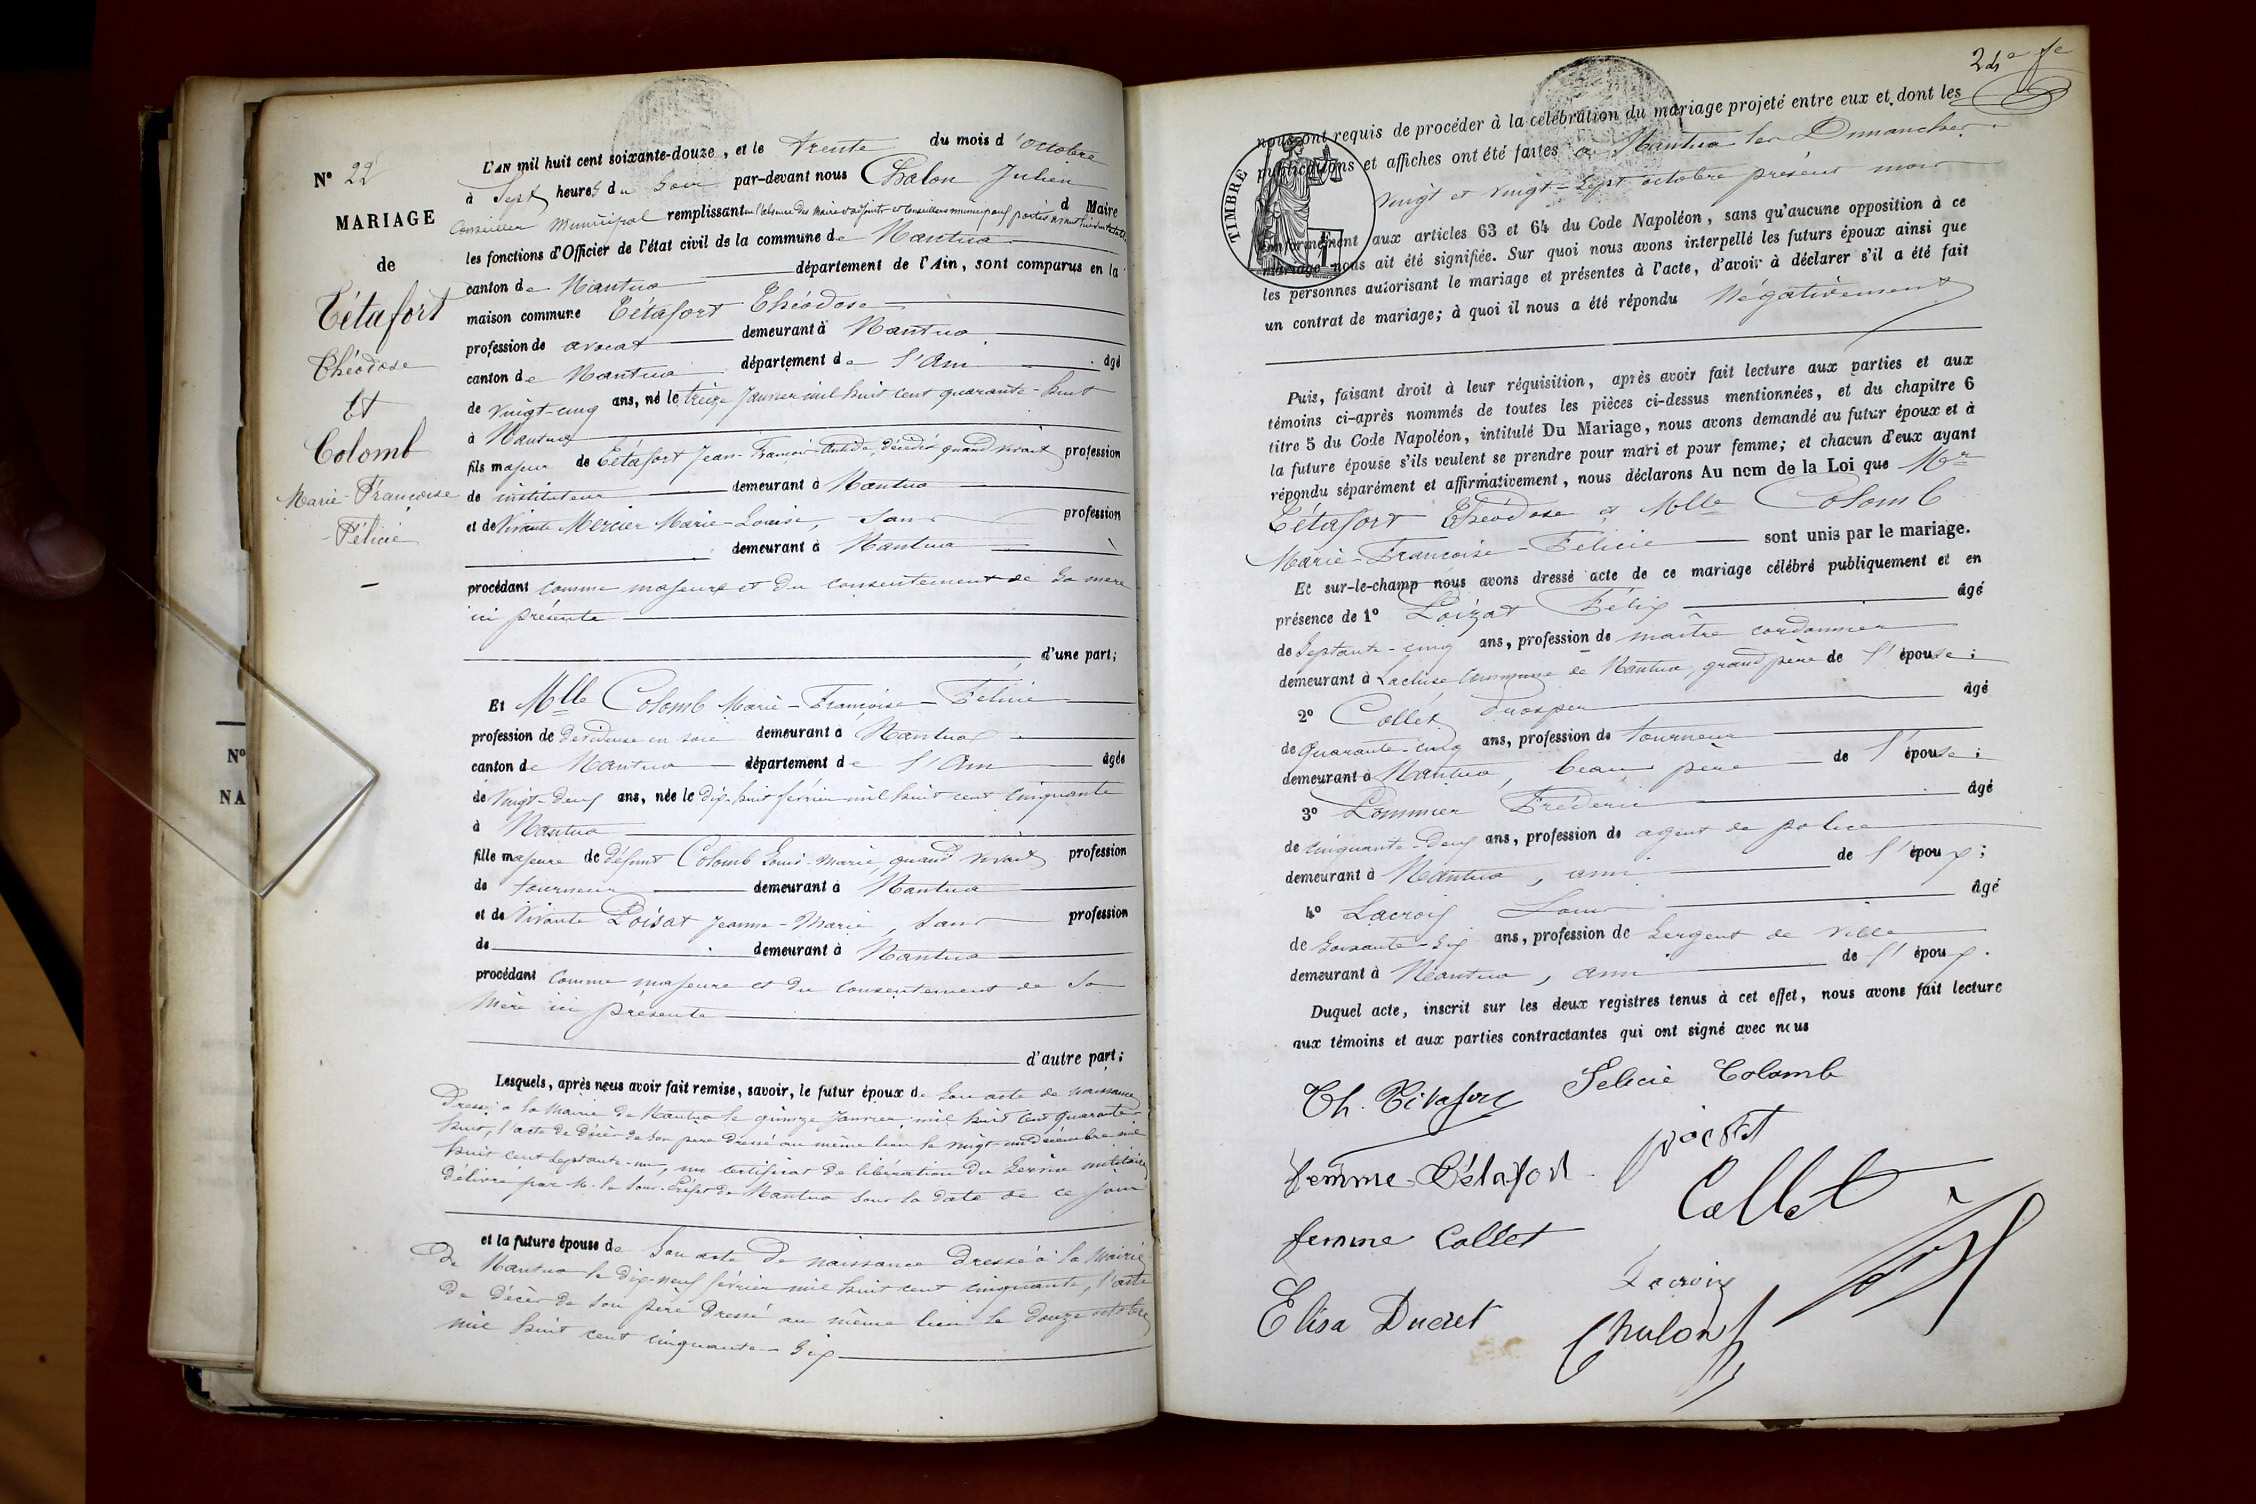 N° 22
MARIAGE
de
Tétafort
Théodose
Et
Colomb
Marie-Françoise
Félicie
N°
NA
L'AN mil huit cent soixante-douze, et le trente du mois d'octobre
à Sept heures du Soir par-devant nous Chalon Julien
Conseiller Municipal remplissant en l'absence des Maire et adjoints et Conseillers municipaux portés d Maire
les fonctions d'Officier de l'état civil de la commune de Nantua
canton de Nantua département de l'Ain, sont comparus en la
maison commune Tétafort Théodose
profession de avocat demeurant à Nantua
canton de Nantua département de l'Ain âgé
de vingt-cinq ans, né le treize Janvier mil huit cent quarante-huit
à Nantua
fils majeur de Tétafort Jean-François décédé, quand vivait profession
de instituteur demeurant à Nantua
et de vivante Mercier Marie-Louise, sans profession
demeurant à Nantua
procédant comme majeur et du consentement de sa mère
ici présente
d'une part;
Et Mlle Colomb Marie-Françoise-Félicie
profession de dévideuse en soie demeurant à Nantua
canton de Nantua département de l'Ain âgée
de vingt-deux ans, née le dix-huit février mil huit cent cinquante
à Nantua
fille majeure de défunt Colomb Louis-Marie, quand vivait profession
de tourneur demeurant à Nantua
et de vivante Loisat Jeanne-Marie, sans profession
de demeurant à Nantua
procédant comme majeure et du consentement de sa
mère ici présente
d'autre part;
Lesquels, après nous avoir fait remise, savoir, le futur époux de son acte de naissance
dressé à la Mairie de Nantua le quinze Janvier mil huit cent quarante
huit, l'acte de décès de son père dressé au même lieu le vingt-un décembre mil
huit cent septante-un, un certificat de libération du service militaire
délivré par M. le Sous-Préfet de Nantua sous la date de ce jour
et la future épouse de son acte de naissance dressé à la Mairie
de Nantua le dix-neuf février mil huit cent cinquante, l'acte
de décès de son père dressé au même lieu le douze octobre
mil huit cent cinquante-six
nous ont requis de procéder à la célébration du mariage projeté entre eux et dont les
publications et affiches ont été faites à Nantua les Dimanches
vingt et vingt-sept octobre présent mois
TIMBRE
conformément aux articles 63 et 64 du Code Napoléon, sans qu'aucune opposition à ce
mariage nous ait été signifiée. Sur quoi nous avons interpellé les futurs époux ainsi que
les personnes autorisant le mariage et présentes à l'acte, d'avoir à déclarer s'il a été fait
un contrat de mariage; à quoi il nous a été répondu Négativement
Puis, faisant droit à leur réquisition, après avoir fait lecture aux parties et aux
témoins ci-après nommés de toutes les pièces ci-dessus mentionnées, et du chapitre 6
titre 5 du Code Napoléon, intitulé Du Mariage, nous avons demandé au futur époux et à
la future épouse s'ils veulent se prendre pour mari et pour femme; et chacun d'eux ayant
répondu séparément et affirmativement, nous déclarons Au nom de la Loi que Mr
Tétafort Théodose et Mlle Colomb
Marie-Françoise-Félicie sont unis par le mariage.
Et sur-le-champ nous avons dressé acte de ce mariage célébré publiquement et en
présence de 1° Loizat Félix âgé
de Septante-cinq ans, profession de maître cordonnier
demeurant à Lacluse Commune de Nantua, grand père de l'épouse;
2° Collet Prosper âgé
de quarante-cinq ans, profession de tourneur
demeurant à Nantua, beau père de l'épouse;
3° Pommier Fréderic âgé
de cinquante-deux ans, profession de agent de police
demeurant à Nantua, ami de l'époux;
4° Lacroix Louis âgé
de soixante-six ans, profession de sergent de ville
demeurant à Nantua, ami de l'époux.
Duquel acte, inscrit sur les deux registres tenus à cet effet, nous avons fait lecture
aux témoins et aux parties contractantes qui ont signé avec nous
Th. Tétafort Felicie Colomb
femme Tétafort
Collet
femme Collet
Lacroix
Elisa Ducret
Chalon J